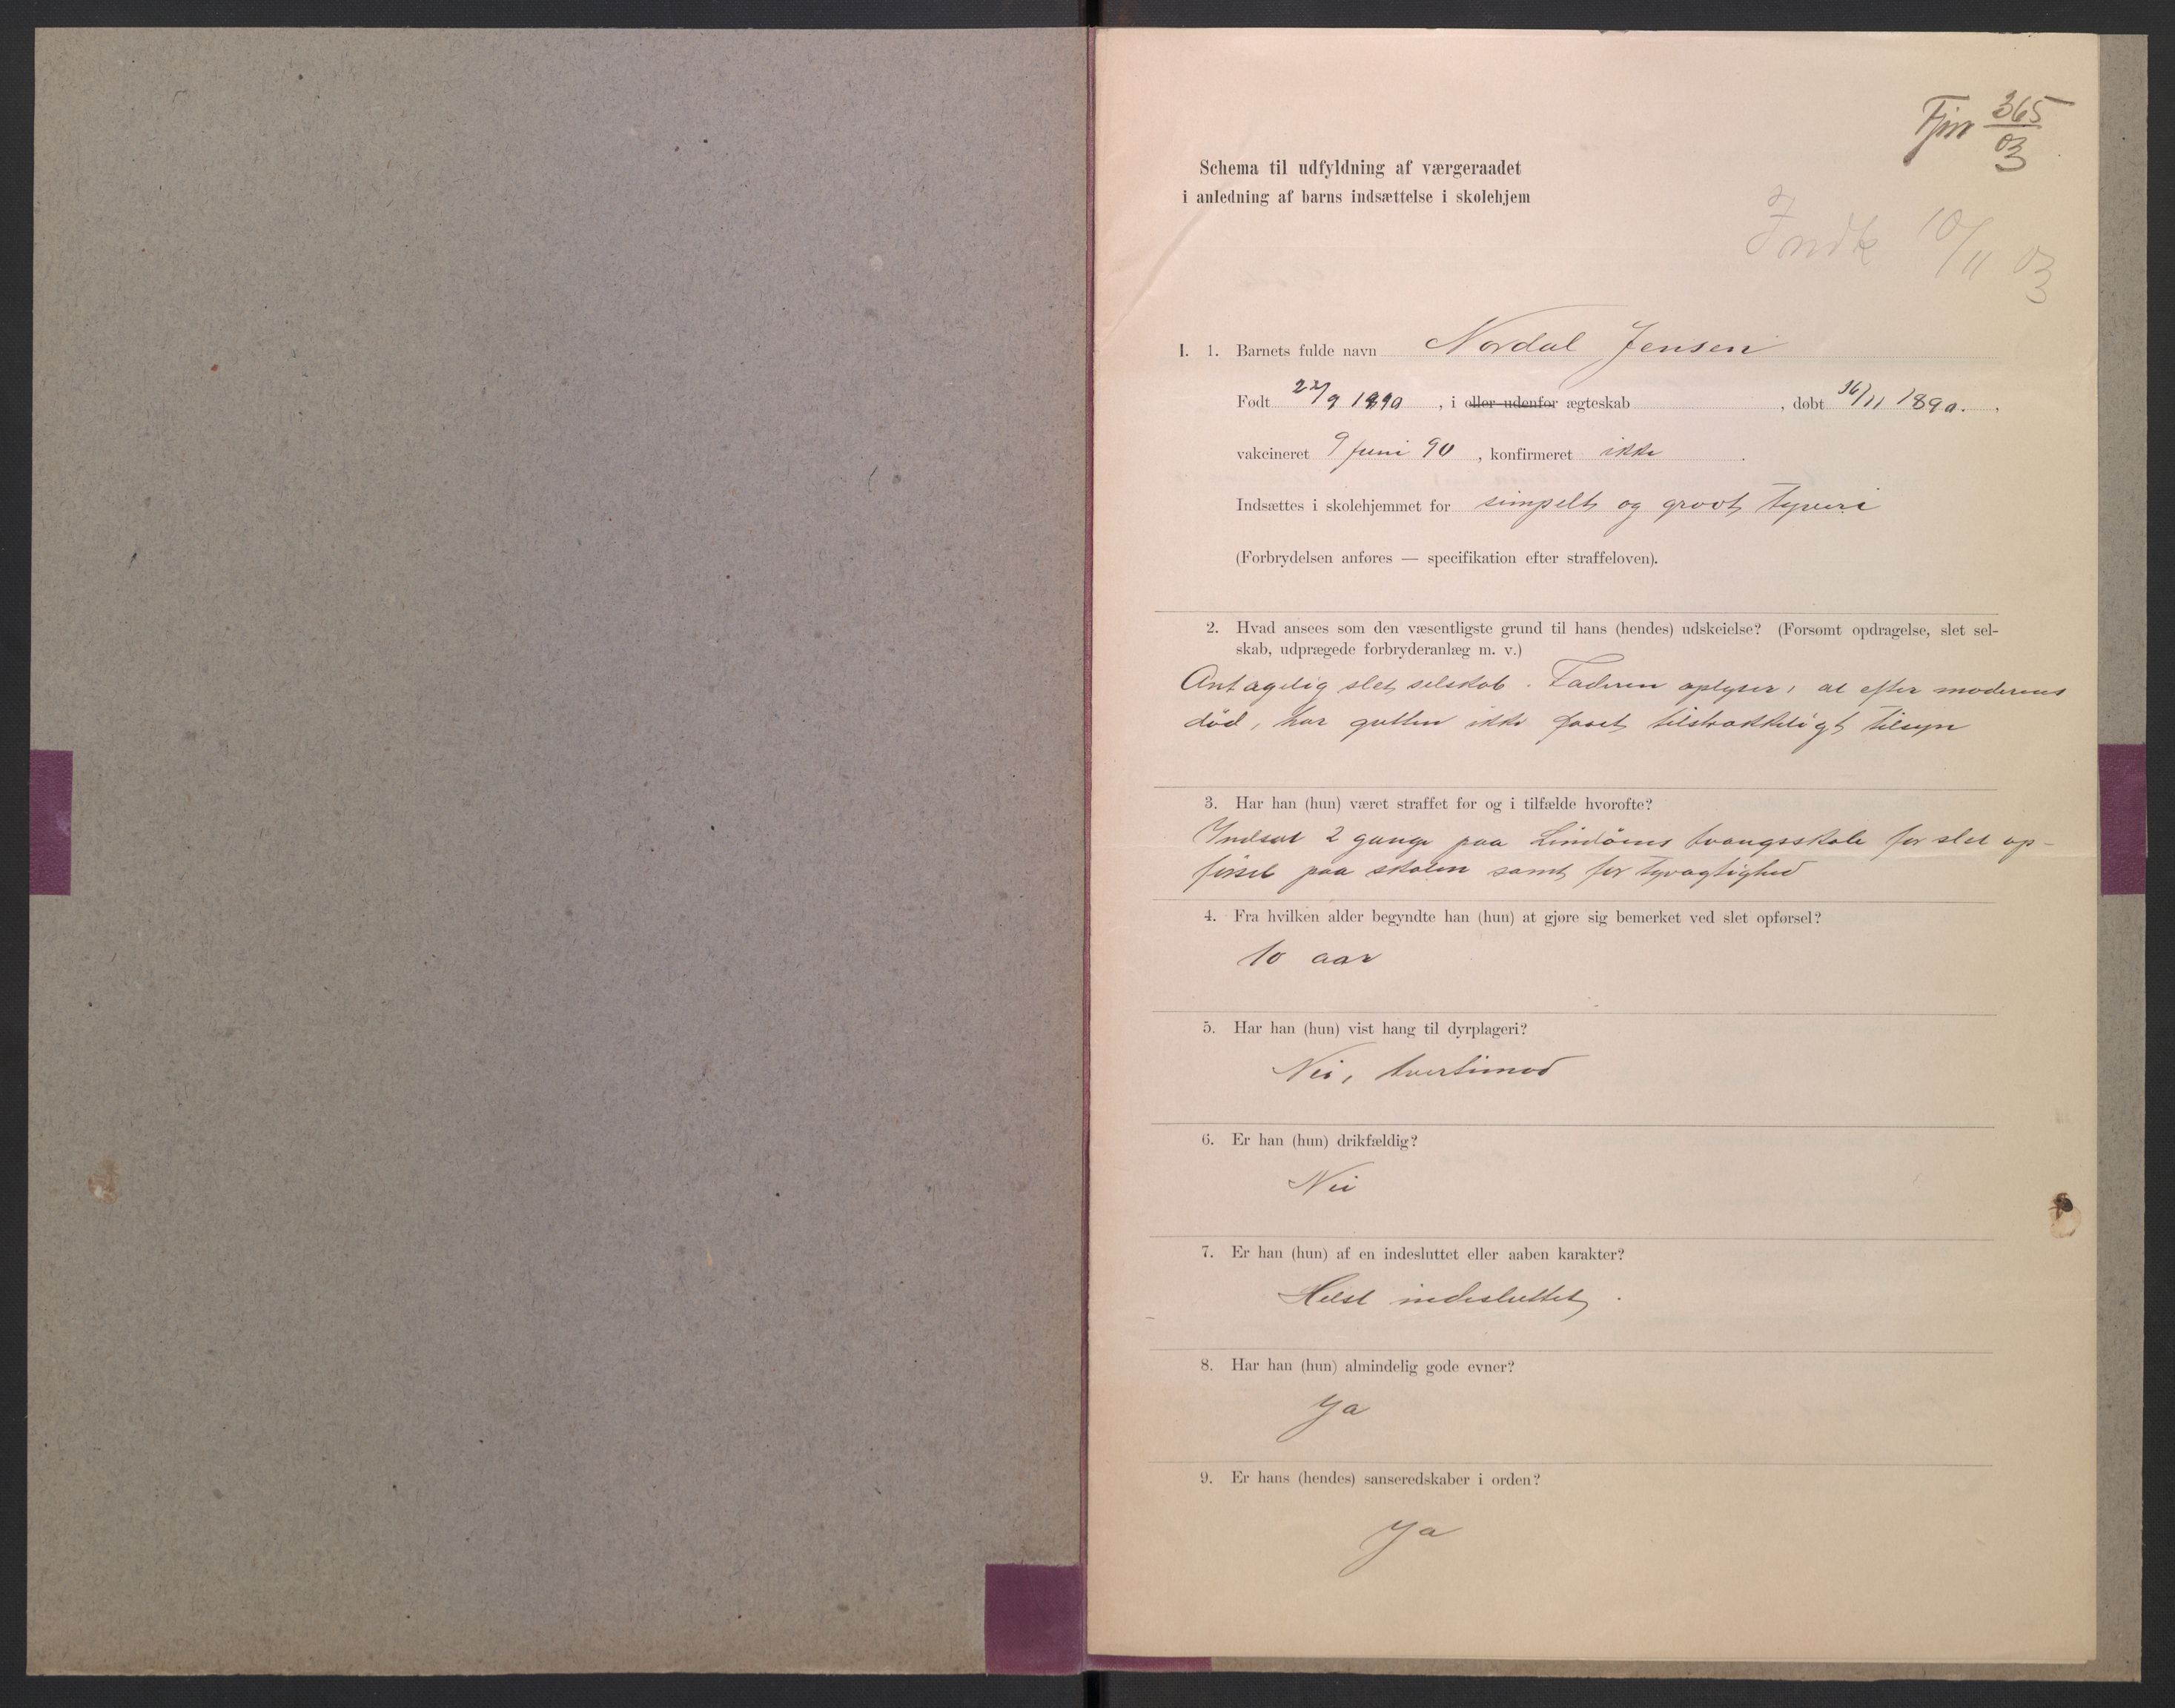 Fjnr 365/03
Schema til udfyldning af værgeraadet
i anledning af barns indsættelse i skolehjem
Indk 10/11 03
I. 1. Barnets fulde navn Nordal Jensen
Født 22/9 1890, i eller udenfor ægteskab, døbt 16/11 1890.
vakcineret 9 juni 90, konfirmeret ikke.
Indsættes i skolehjemmet for simpelt og grovt tyveri
(Forbrydelsen anføres — specifikation efter straffeloven).
2. Hvad ansees som den væsentligste grund til hans (hendes) udskeielse? (Forsømt opdragelse, slet sel-
skab, udprægede forbryderanlæg m. v.)
Antagelig slet selskab. Faderen oplyser, at efter moderens
död, har gutten ikke faaet tilstrækkeligt tilsyn
3. Har han (hun) været straffet før og i tilfælde hvorofte?
Indsat 2 gange paa Lindöens tvangsskole for slet op-
førsel paa skolen samt for tyvagtighed
4. Fra hvilken alder begyndte han (hun) at gjøre sig bemerket ved slet opførsel?
10 aar
5. Har han (hun) vist hang til dyrplageri?
Nei, tvertimod
6. Er han (hun) drikfældig?
Nei
7. Er han (hun) af en indesluttet eller aaben karakter?
Helst indesluttet.
8. Har han (hun) almindelig gode evner?
Ja
9. Er hans (hendes) sanseredskaber i orden?
Ja